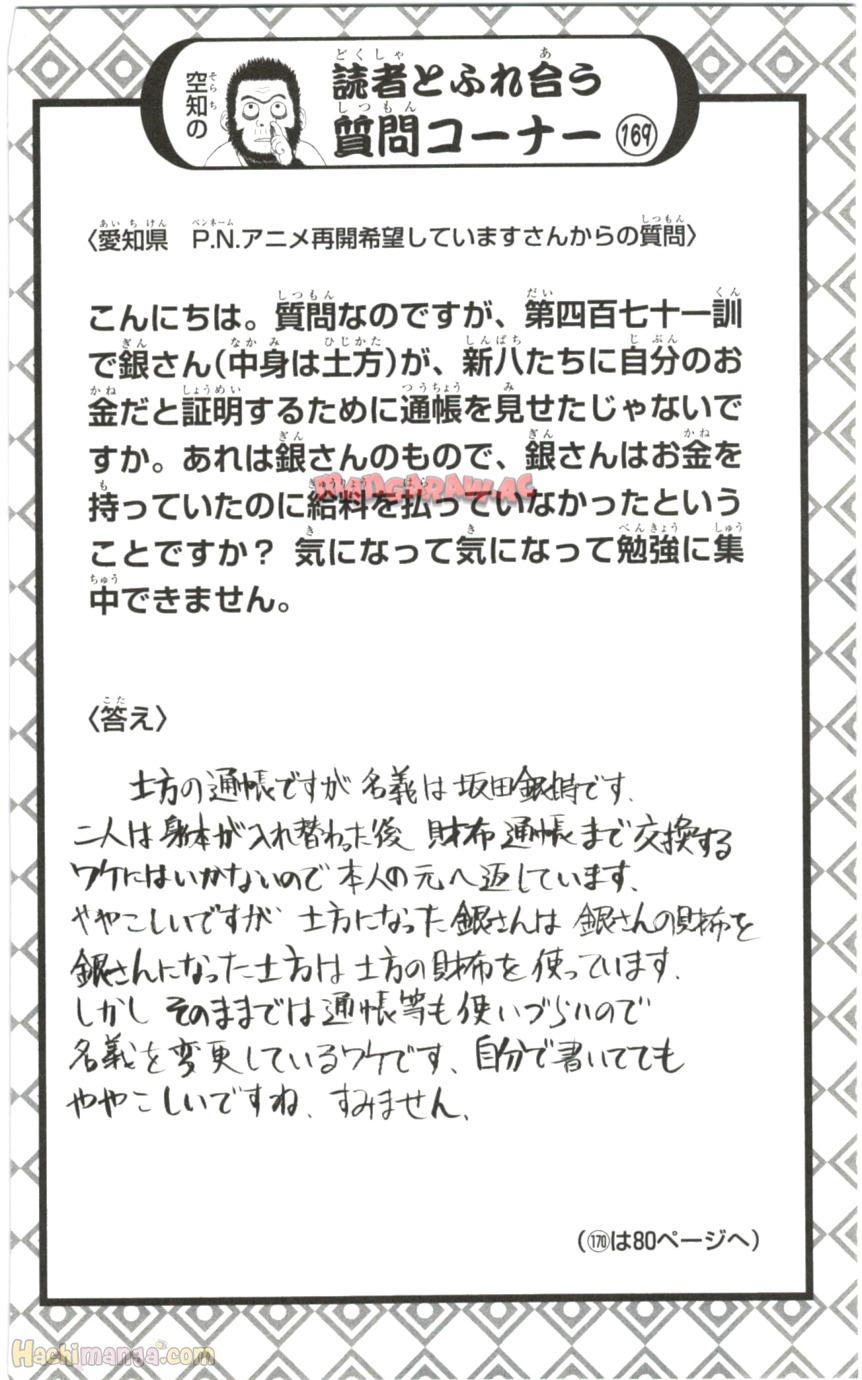 空知の
読者とふれ合う
質問コーナー 169
〈愛知県 P.N.アニメ再開希望していますさんからの質問〉
こんにちは。質問なのですが、第四百七十一訓
で銀さん(中身は土方)が、新八たちに自分のお
金だと証明するために通帳を見せたじゃないで
すか。あれは銀さんのもので、銀さんはお金を
持っていたのに給料を払っていなかったという
ことですか? 気になって気になって勉強に集
中できません。
MANGARAW.AC
〈答え〉
土方の通帳ですが 名義は坂田銀時です、
二人は身体が入れ替わった後 財布通帳まで交換する
ワケにはいかないので 本人の元へ返しています、
ややこしいですが 土方になった銀さんは 銀さんの財布を
銀さんになった土方は 土方の財布を使っています、
しかし そのままでは通帳等も使いづらいので
名義を変更しているワケです、自分で書いてても
ややこしいですね、すみません、
(170は80ページへ)
Hachimanga.com